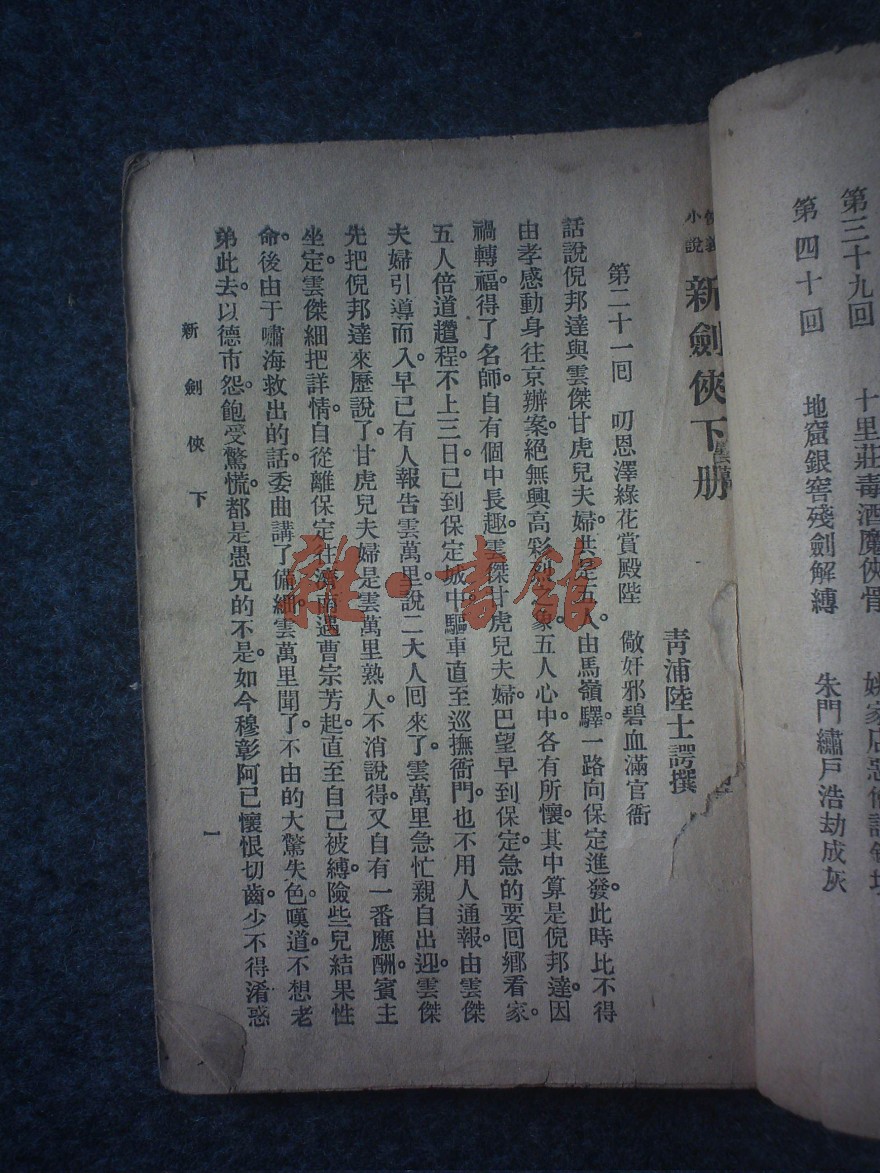 第三十九回　十里莊毒酒魔俠骨
第四十回　地窟銀窖殘劍解縛　朱門繡戶浩劫成灰
俠義小說　新劍俠下册
青浦陸士諤撰
第二十一回　叨恩澤綠花賞殿陛　儆奸邪碧血滿官衙
話說倪邦達與雲傑甘虎兒夫婦共是五人由馬嶺驛一路向保定進發。此時比不得
由孝感動身往京辦案絕無興高彩烈之象。五人心中各有所懷。其中算是倪邦達。因
禍轉福。得了名師。自有個中長趣。雲傑甘虎兒夫婦巴望早到保定。急的要囘鄉看家。
五人倍道趲程。不上三日。已到保定城中。驅車直至巡撫衙門。也不用人通報。由雲傑
夫婦引導而入。早已有人報告雲萬里。說二大人囘來了。雲萬里急忙親自出迎。雲傑
先把倪邦達來歷說了。甘虎兒夫婦是雲萬里熟人。不消說得。又自有一番應酬。賓主
坐定。雲傑細把詳情。自從離保定往濟南遇曹宗芳起。直至自己被縛。險些兒結果性
命。後由于嘯海救出的話。委曲講了備細。雲萬里聞了。不由的大驚失色。嘆道。不想老
弟此去。以德市怨。飽受驚慌。都是愚兄的不是。如今穆彰阿已懷恨切齒。少不得淆惑
新劍俠下
一
雜·書館